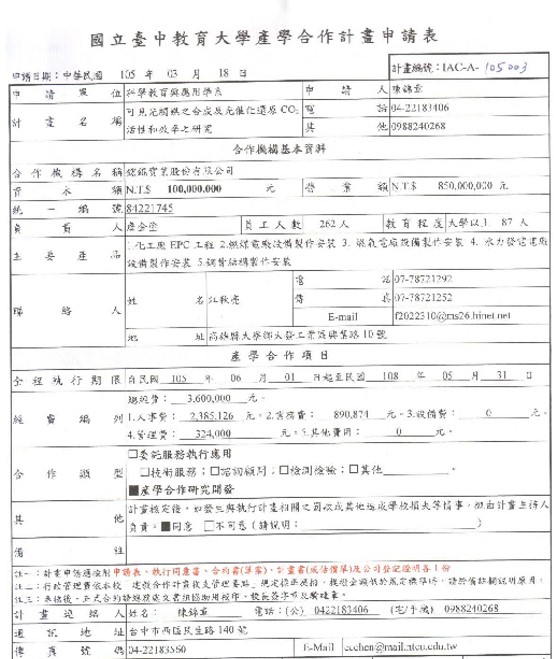 國立臺中教育大學產學合作計畫申請表
申請日期：中華民國 105 年 03 月 18 日 計畫編號：IAC-A-105003
申請單位 科學教育與應用學系 申請人 陳錦章
計畫名稱 可見光觸媒之合成及光催化還原 CO₂ 活性和效率之研究 電話 04-22183406
其他 0988240268
合作機構基本資料
合作機構名稱 股份有限公司
資本額 N.T.$ 100,000,000 元 營業額 N.T.$ 850,000,000 元
統一編號 84221745
負責人 員工人數 262人 教育程度 大學以上 87 人
主要產品 1.化工廠 EPC 工程 2.燃煤電廠設備製作安裝 3. 燃氣電廠設備製作安裝 4. 水力發電電廠
設備製作安裝 5.鋼骨結構製作安裝
聯絡人 姓名 江秋亮 電話 07-78721292
傳真 07-78721252
E-mail f2022310@ms26.hinet.net
地址 高雄縣大寮鄉大發工業區興業路 10 號
產學合作項目
全程執行期限 自民國 105 年 06 月 01 日起至民國 108 年 05 月 31 日
經費編列 總經費： 3,600,000 元。
1.人事費： 2,385,126 元。2.業務費： 890,874 元。3.設備費： 0 元。
4.管理費： 324,000 元。5.其他費用： 0 元。
合作類型 □委託服務執行應用
□技術服務；□諮詢顧問；□檢測檢驗；□其他 。
■產學合作研究開發
其他 計畫核定後，如發生與執行計畫相關之罰款或其他造成學校損失等情事，將由計畫主持人
負責。■同意 □不同意 (請說明： )
備註
註一：計畫申請應檢附申請表、執行同意書、合約書(草案)、計畫書(或估價單)及公司登記證明各1份
計畫連絡人 姓名： 陳錦章 電話：(公) 0422183406 (宅/手機) 0988240268
通訊地址 台中市西區民生路 140 號
傳真號碼 04-22183560 E-Mail ccchen@mail.ntcu.edu.tw